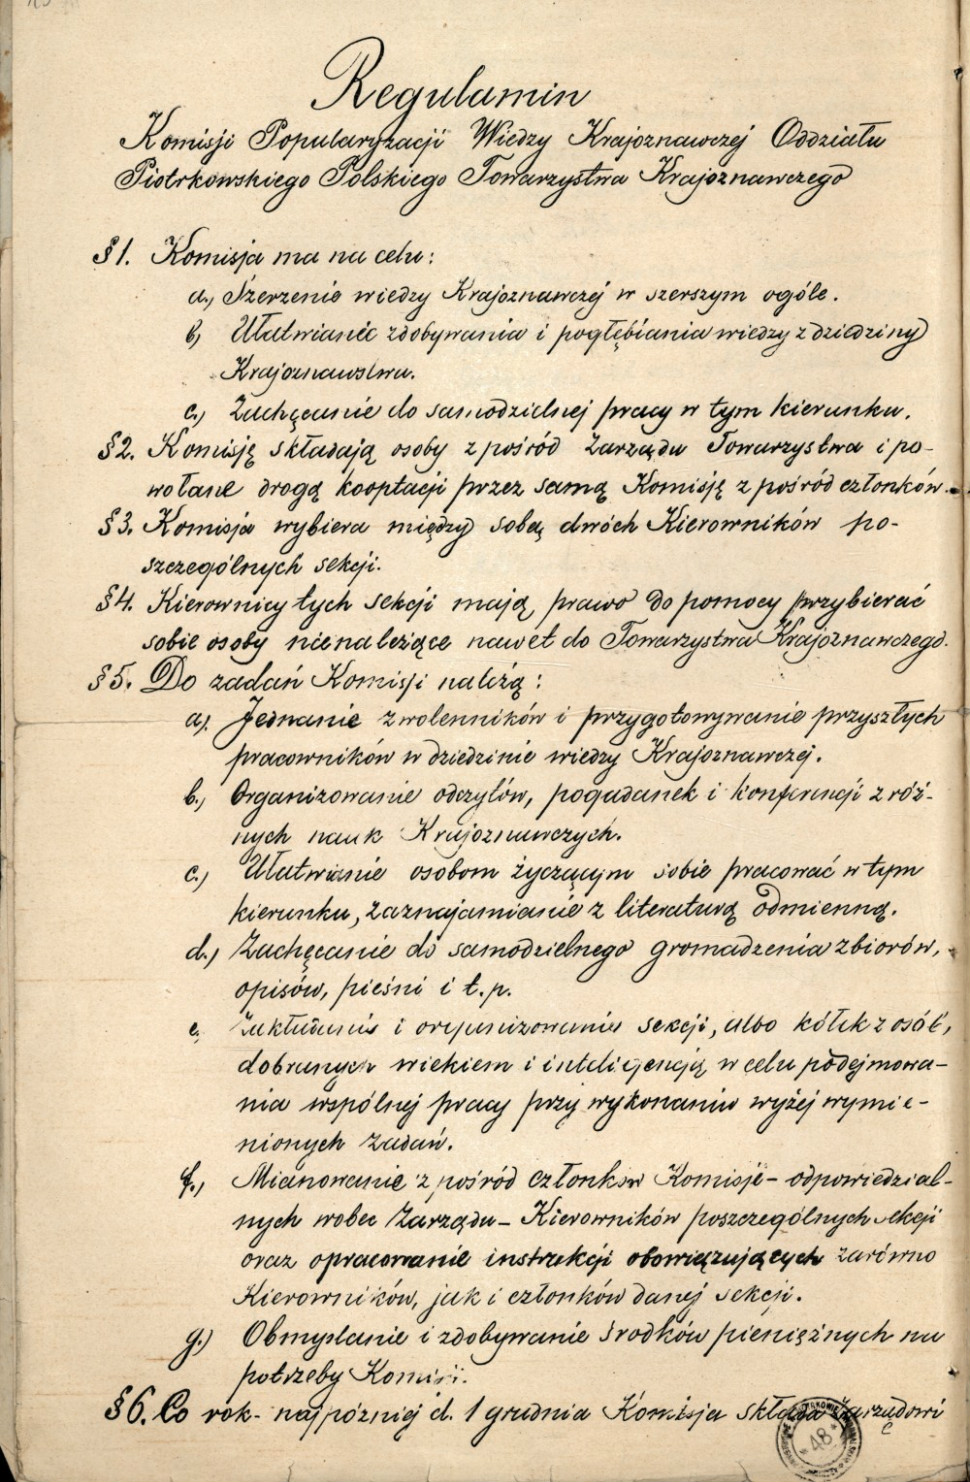 Regulamin
Komisji Popularyzacji Wiedzy Krajoznawczej Oddziału
Piotrkowskiego Polskiego Towarzystwa Krajoznawczego
§1. Komisja ma na celu:
a.) Szerzenie wiedzy Krajoznawczej w szerszym ogóle.
b) Ułatwianie zdobywania i pogłębiania wiedzy z dziedziny
Krajoznawstwa.
c.) Zachęcanie do samodzielnej pracy w tym kierunku.
§2. Komisję składają osoby z pośród Zarządu Towarzystwa i po-
wołane drogą kooptacji przez samą Komisję z pośród członków.
§3. Komisja wybiera między sobą dwóch Kierowników po-
szczególnych sekcji.
§4. Kierownicy tych sekcji mają prawo do pomocy przybierać
sobie osoby nienależące nawet do Towarzystwa Krajoznawczego.
§5. Do zadań Komisji należą:
a). Jednanie zwolenników i przygotowywanie przyszłych
pracowników w dziedzinie wiedzy Krajoznawczej.
b.) Organizowanie odczytów, pogadanek i konferencji z róż-
nych nauk Krajoznawczych.
c.) Ułatwianie osobom życzącym sobie pracować w tym
kierunku, zaznajamianie z literaturą odmienną.
d.) Zachęcanie do samodzielnego gromadzenia zbiorów,
opisów, pieśni i t.p.
e. Zakładanie i organizowanie sekcji, albo kółek z osób,
dobranych wiekiem i inteligencją w celu podejmowa-
nia wspólnej pracy przy wykonaniu wyżej wymie-
nionych zadań.
f.) Mianowanie z pośród członków Komisje - odpowiedzial-
nych wobec Zarządu - Kierowników poszczególnych sekcji
oraz opracowanie instrukcji obowiązujących zarówno
Kierowników, jak i członków danej sekcji.
g.) Obmyślanie i zdobywanie środków pieniężnych na
potrzeby Komisji.
§6. Co rok - najpóźniej d. 1 grudnia Komisja składa Zarządowi
48